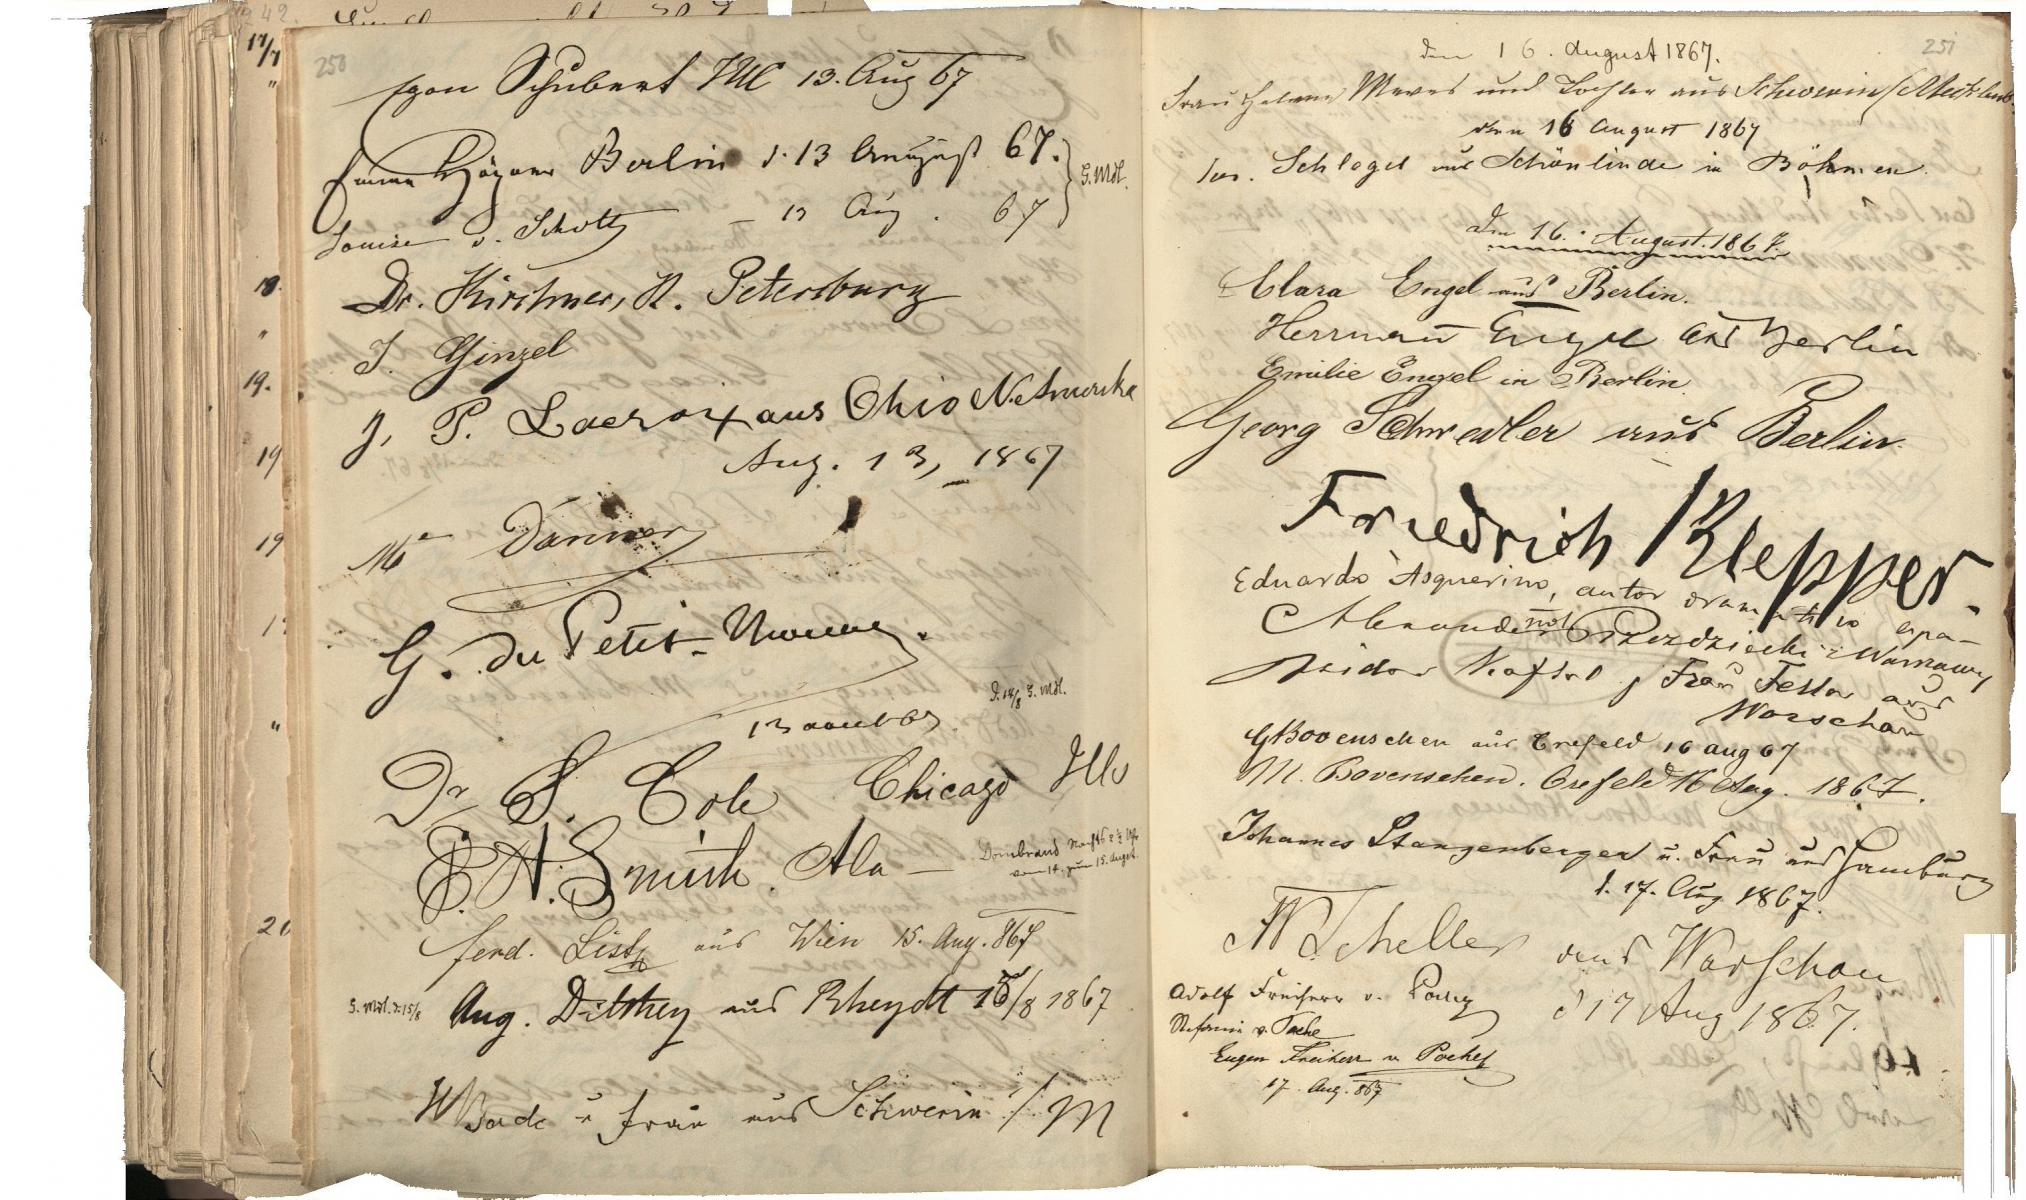 250
Egon Schubert 13. Aug 67
Berlin d. 13 August 67.
G. Mdl.
Louise v. Schultz – 13 Aug. 67
Dr. Kirchner, St. Petersburg
J. Ginzel
J. P. Lacroix aus Ohio N. Amerika
Aug. 13, 1867
Danner
G. du Petit-
13 août 67
d. 14/8 G. Mdl.
Dr S. Cole Chicago Ills
E. H. Smith. Ala –
Dombrand Nachts Uhr
vom 14. zum 15. August.
Ferd. Listz aus Wien 15. Aug. 867
G. Mdl. d. 15/8
Aug. Dilthey aus Rheydt 15/8 1867
W Bade u Frau aus Schwerin i/M
251
den 16. August 1867.
Frau Helene Mewes und Tochter aus Schwerin/Mecklenb.
den 16 August 1867
Jos. Schlogel aus Schönlinde in Böhmen.
Den 16. August. 1867.
Clara Engel aus Berlin.
Herrmann Engel aus Berlin
Emilie Engel in Berlin
Georg Schwedler aus Berlin.
Friedrich Klepper.
Eduardo Asquerino, autor dramatico espa-
ñol
Alexander Przezdziecki z Warszawy
Isidor Kaftal & Frau Fesla aus
Warschau
G Bovenschen aus Crefeld 16 aug 67
M. Bovenschen. Crefeld 16 Aug. 1867.
Johannes Stangenberger u. Frau aus Hamburg
d. 17. Aug 1867.
W Scheller aus Warschau
d 17 Aug 1867.
Adolf Freiherr v.
Stefanie v.
Eugen Freiherr v Poche
17. Aug. 867